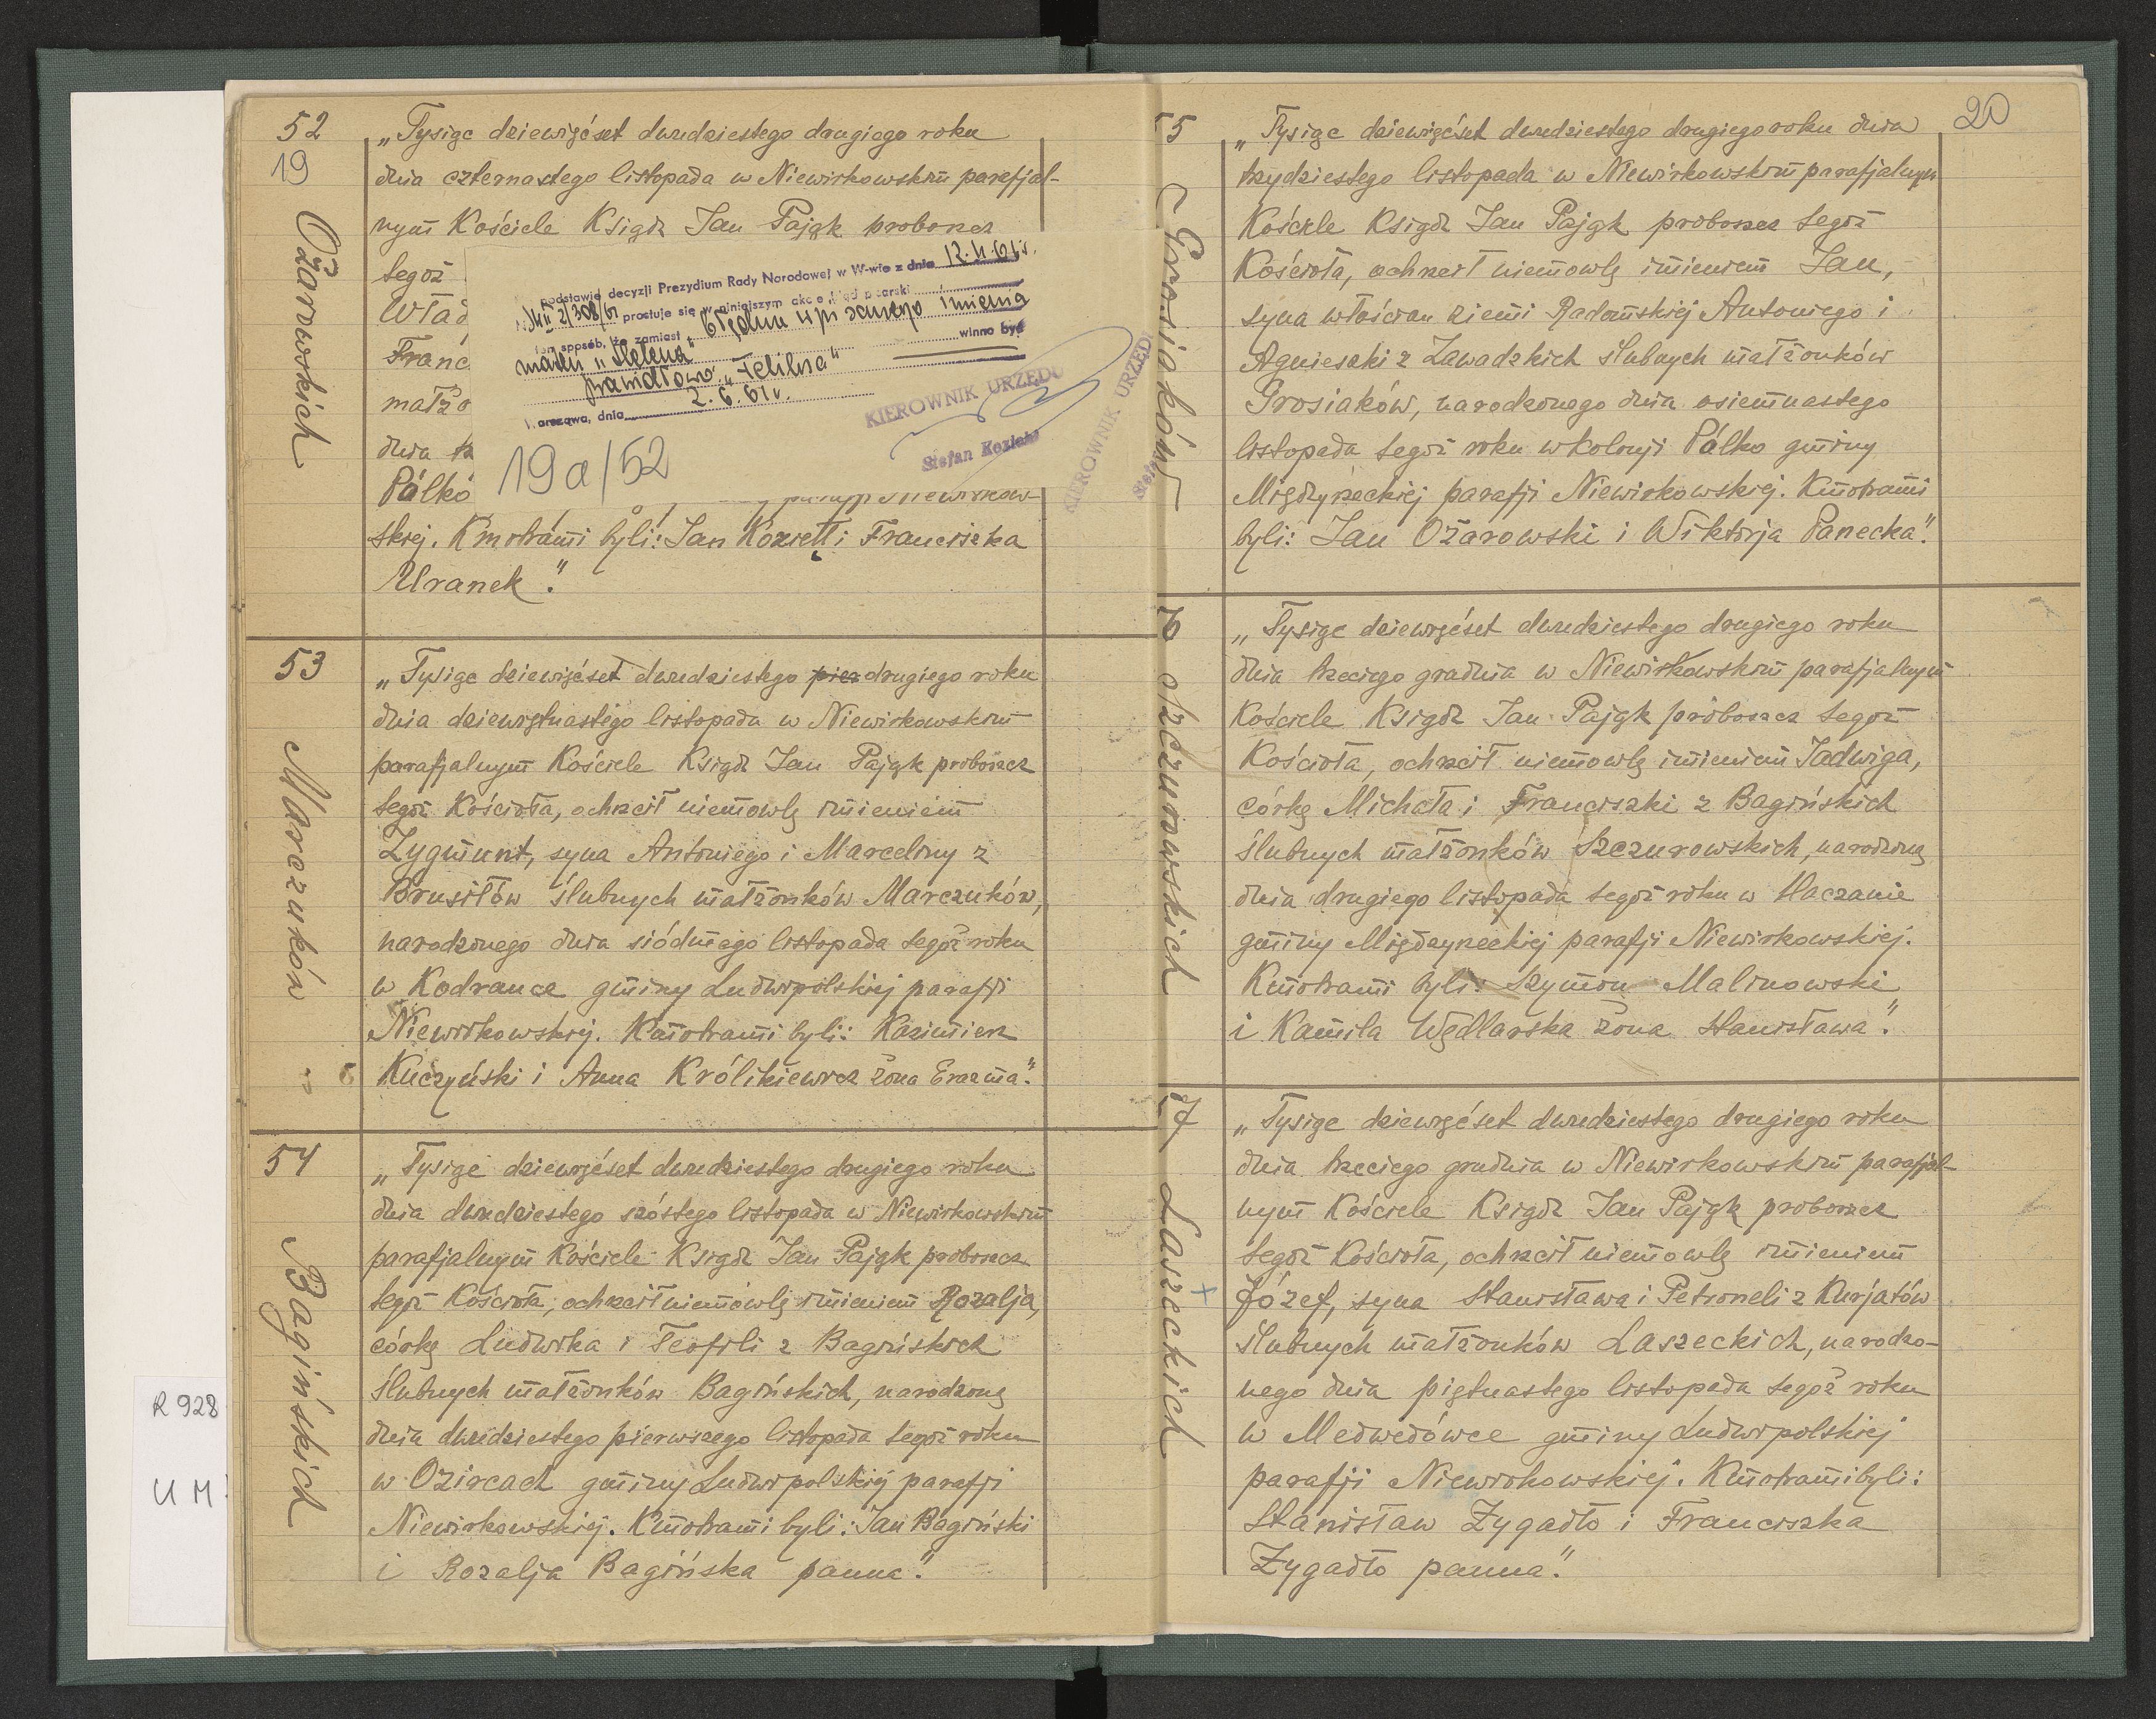 52
19
Ożarowskich
„Tysiąc dziewięćset dwudziestego drugiego roku
dnia czternastego listopada w Niewirkowskim parafjal-
nym Kościele Ksiądz Jan Pająk proboszcz
tegoż
Wład
Franc
małżo
dnia
Pálko
podstawie decyzji Prezydium Rady Narodowej w W-wie z dnia
prostuje się w niniejszym akcie błąd pisarski
błędnie wpisanego imienia
ten sposób, że zamiast
matki „Helena" winno być
prawidłowo „Felilsa"
2.6.61r.
Warszawa, dnia
KIEROWNIK URZĘDU
Stefan Kozioł
KIEROWNIK URZĘDU
19a/52
parafji Niewirkow-
skiej. Kmotrami byli: Jan Koziełł i Franciszka
Uranek".
53
Marczuków
„Tysiąc dziewięćset dwudziestego pier drugiego roku
dnia dziewiętnastego listopada w Niewirkowskim
parafjalnym Kościele Ksiądz Jan Pająk proboszcz
tegoż Kościoła, ochrzcił niemowlę imieniem
Zygmunt, syna Antoniego i Marceliny z
Brusiłów ślubnych małżonków Marczuków,
narodzonego dnia siódmego listopada tegoż roku
w Kodrance gminy Ludwipolskiej parafji
Niewirkowskiej. Kmotrami byli: Kazimierz
Kuczyński i Anna Królikiewicz żona Erazma".
54
Bagińskich
„Tysiąc dziewięćset dwudziestego drugiego roku
dnia dwudziestego szóstego listopada w Niewirkowskim
parafjalnym Kościele Ksiądz Jan Pająk proboszcz
tegoż Kościoła, ochrzcił niemowlę imieniem Rozalja,
córkę Ludwika i Teofili z Bagińskich
ślubnych małżonków Bagińskich, narodzoną
dnia dwudziestego pierwszego listopada tegoż roku
w Ozircach gminy Ludwipolskiej parafji
Niewirkowskiej. Kmotrami byli: Jan Bagiński
i Rozalja Bagińska panna".
R 928
U M
20
55
Grosiaków
„Tysiąc dziewięćset dwudziestego drugiego roku dnia
trzydziestego listopada w Niewirkowskim parafjalnym
Kościele Ksiądz Jan Pająk proboszcz tegoż
Kościoła, ochrzcił niemowlę imieniem Jan,
syna włościan ziemi Radomskiej Antoniego i
Agnieszki z Zawadzkich ślubnych małżonków
Grosiaków, narodzonego dnia osiemnastego
listopada tegoż roku w kolonji Pálko gminy
Międzyrzeckiej parafji Niewirkowskiej. Kmotrami
byli: Jan Ożarowski i Wiktorja Panecka".
Szczurowskich
„Tysiąc dziewięćset dwudziestego drugiego roku
dnia trzeciego grudnia w Niewirkowskim parafjalnym
Kościele Ksiądz Jan Pająk proboszcz tegoż
Kościoła, ochrzcił niemowlę imieniem Jadwiga,
córkę Michała i Franciszki z Bagińskich
ślubnych małżonków Szczurowskich, narodzoną
dnia drugiego listopada tegoż roku w Haczanie
gminy Międzyrzeckiej parafji Niewirkowskiej.
Kmotrami byli: Szymon Malinowski
i Kamila Wędlarska żona Stanisława".
Laszeckich
„Tysiąc dziewięćset dwudziestego drugiego roku
dnia trzeciego grudnia w Niewirkowskim parafjal-
nym Kościele Ksiądz Jan Pająk proboszcz
tegoż Kościoła, ochrzcił niemowlę imieniem
Józef, syna Stanisława i Petroneli z Kurjatów
ślubnych małżonków Laszeckich, narodzo-
nego dnia piętnastego listopada tegoż roku
w Medwedówce gminy Ludwipolskiej
parafji Niewirkowskiej. Kmotrami byli:
Stanisław Zygadło i Franciszka
Zygadło panna".